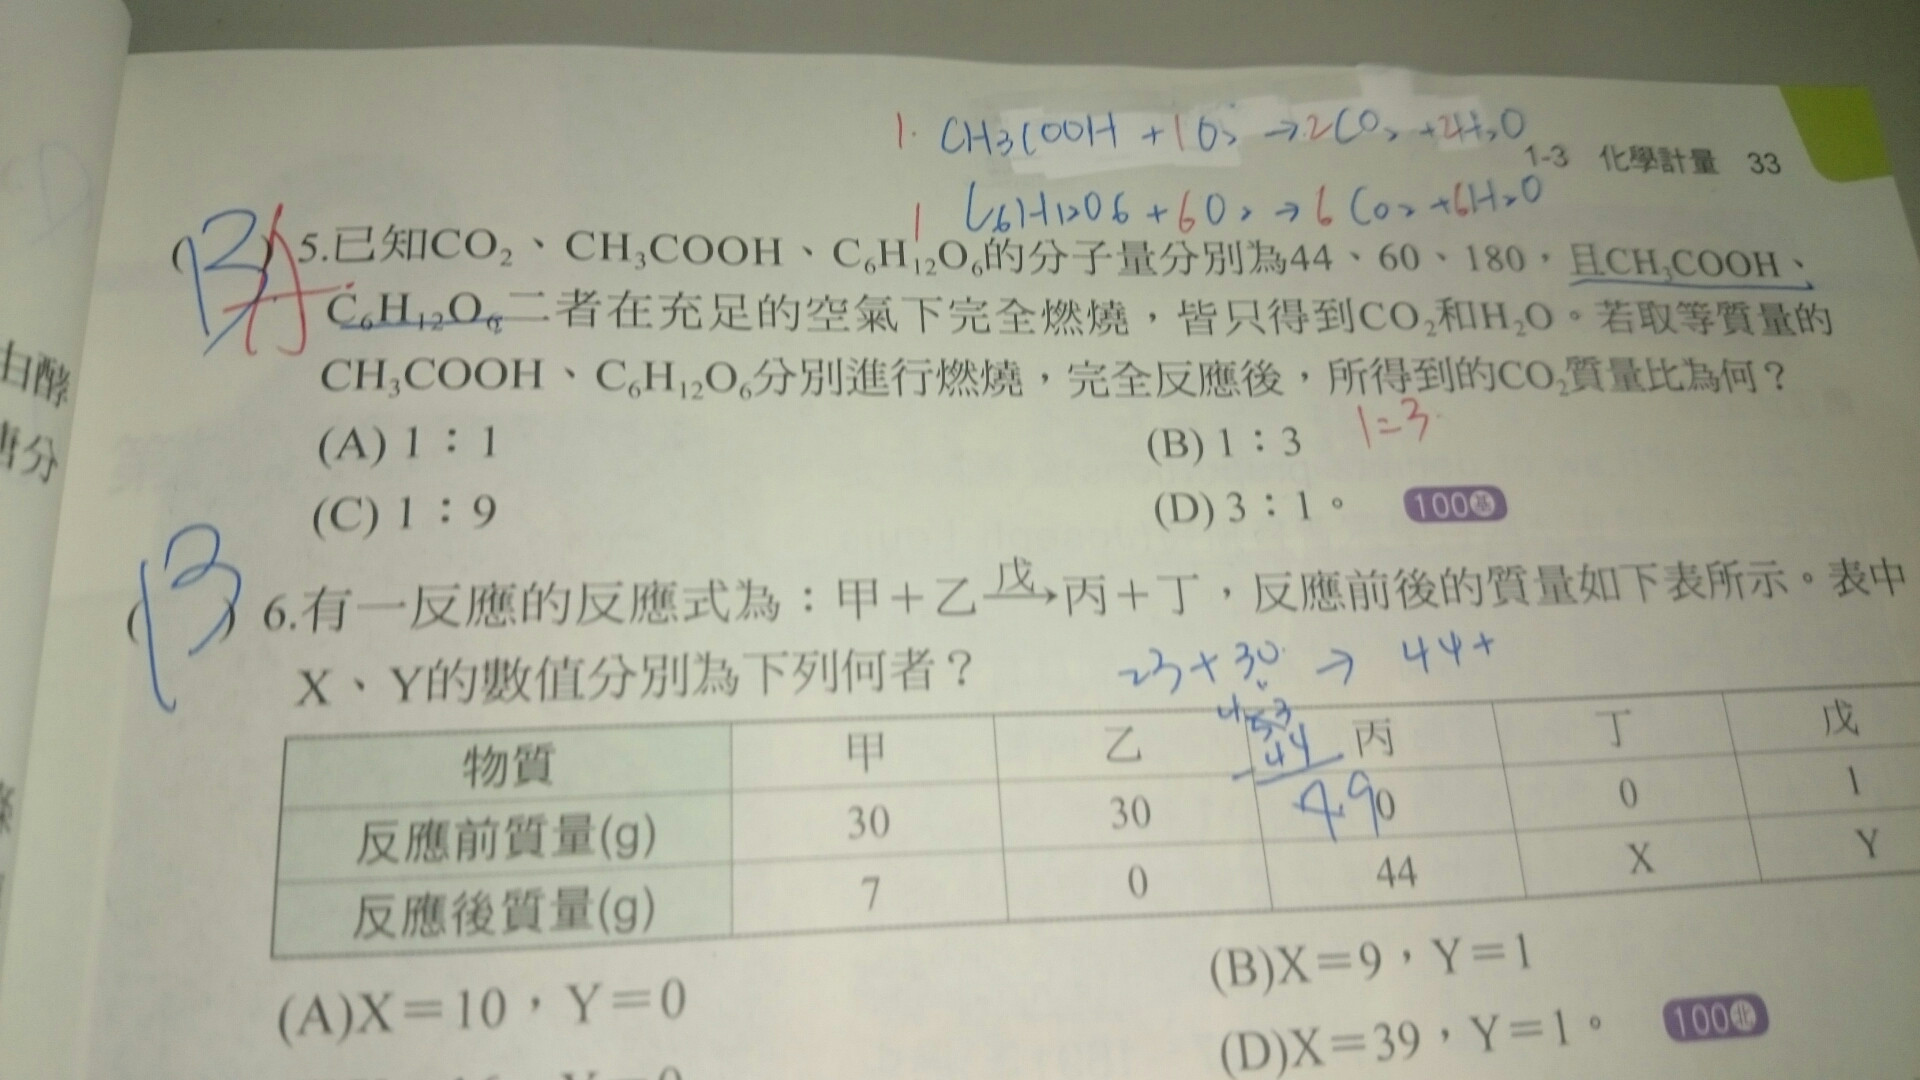 1. CH3COOH + 1O2 → 2CO2 + 2H2O
1-3 化學計量 33
1 C6H12O6 + 6O2 → 6CO2 + 6H2O
(B) A 5.已知CO₂、CH₃COOH、C₆H₁₂O₆的分子量分別為44、60、180，且CH₃COOH、
C₆H₁₂O₆二者在充足的空氣下完全燃燒，皆只得到CO₂和H₂O。若取等質量的
CH₃COOH、C₆H₁₂O₆分別進行燃燒，完全反應後，所得到的CO₂質量比為何？
1=3.
(A) 1：1 (B) 1：3
(C) 1：9 (D) 3：1。 100基
(B) 6.有一反應的反應式為：甲＋乙 戊→ 丙＋丁，反應前後的質量如下表所示。表中
X、Y的數值分別為下列何者？
23+30 → 44+
53
44
9
物質 甲 乙 丙 丁 戊
反應前質量(g) 30 30 0 0 1
反應後質量(g) 7 0 44 X Y
(A)X＝10，Y＝0 (B)X＝9，Y＝1
(D)X＝39，Y＝1。 100北
白酵
唐分